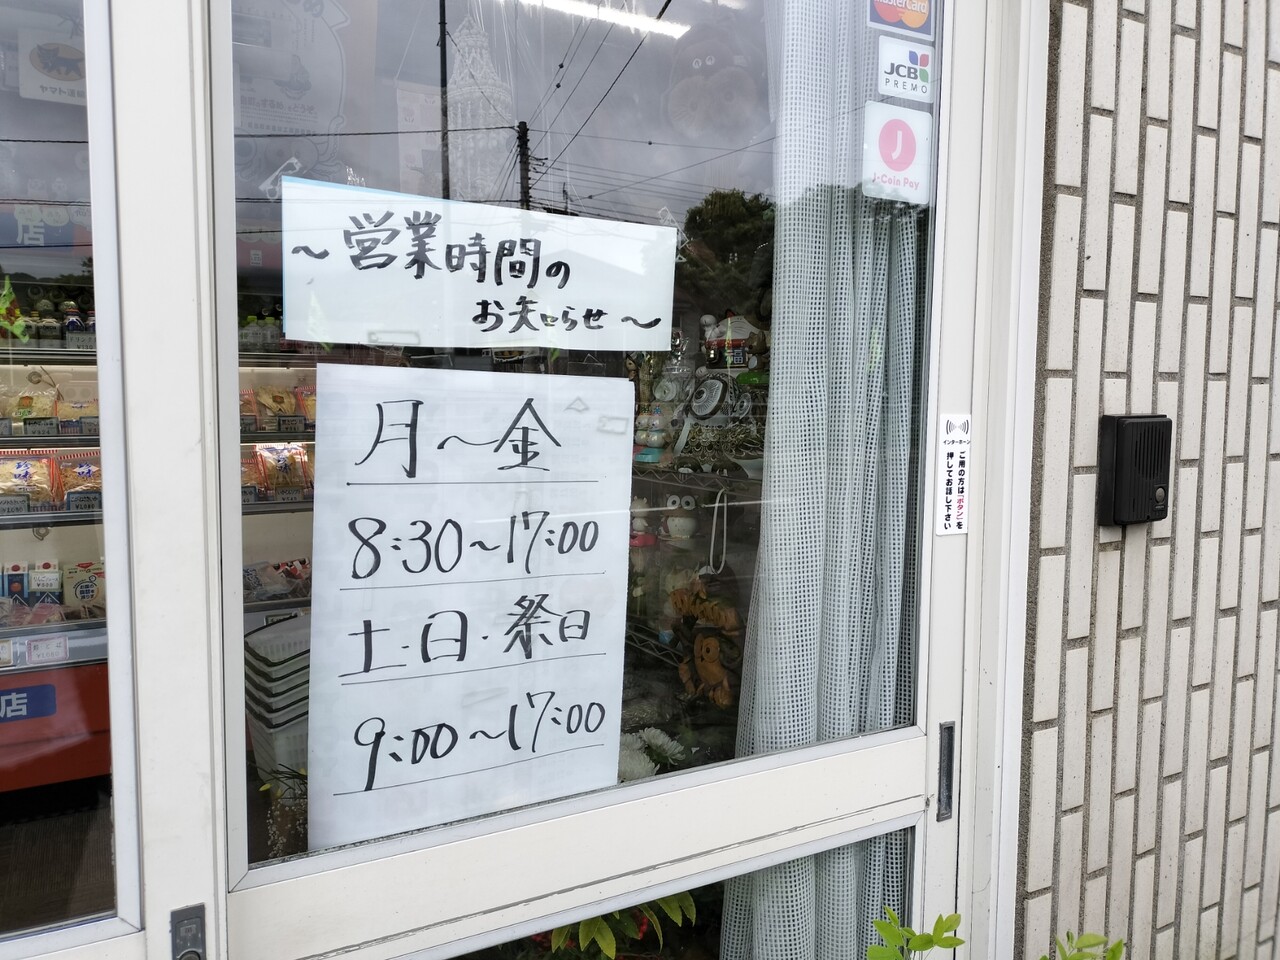 MasterCard
JCB
PREMO
J-Coin Pay
～営業時間の
お知らせ～
月～金
8:30～17:00
土・日・祭日
9:00～17:00
インターホーン
ご用の方は「ボタン」を
押してお話し下さい
店
店
珍味
福